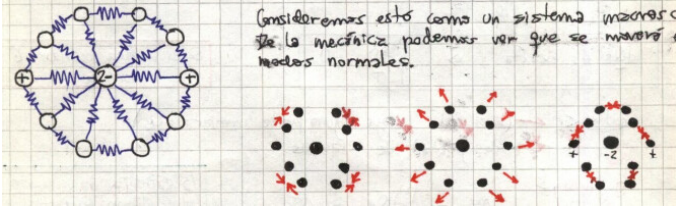 Consideremos esto como un sistema macrosc
De la mecánica podemos ver que se moverá
modos normales.
+ 2- +
+ -2 +